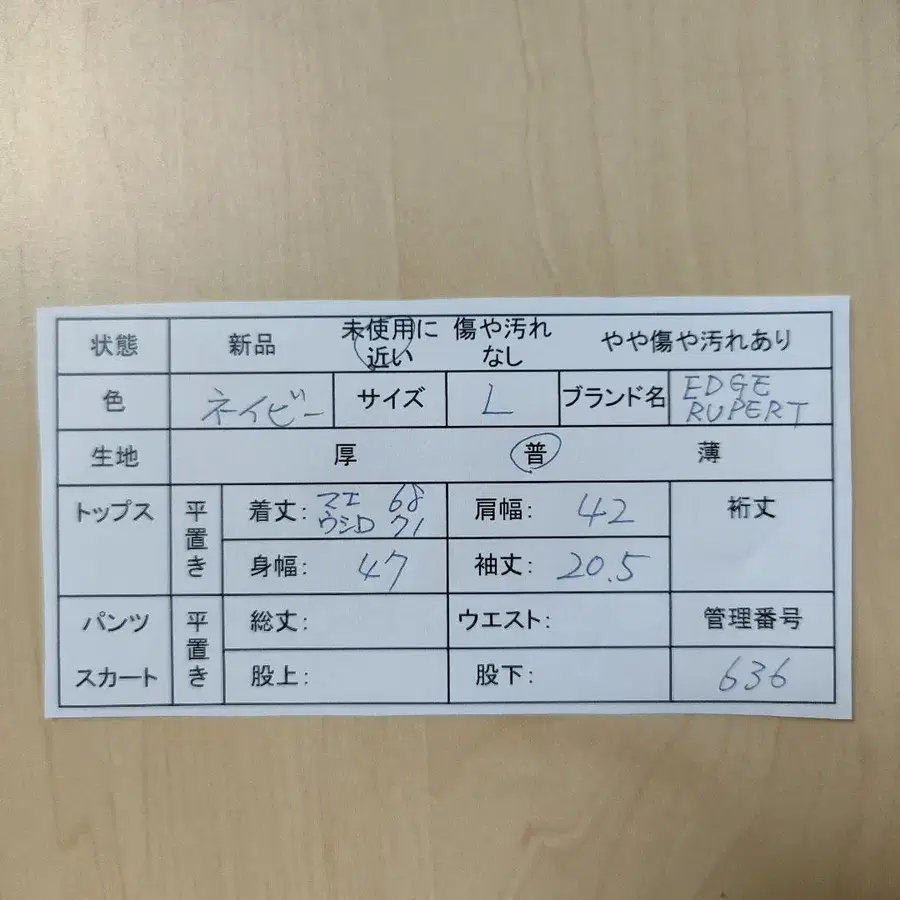 状態 新品 未使用に近い 傷や汚れなし やや傷や汚れあり
色 ネイビー サイズ L ブランド名 EDGE RUPERT
生地 厚 普 薄
トップス 平置き 着丈: マエ 68 ウシロ 71 肩幅: 42 裄丈
身幅: 47 袖丈: 20.5
パンツ 平置き 総丈: ウエスト: 管理番号
スカート 股上: 股下: 636